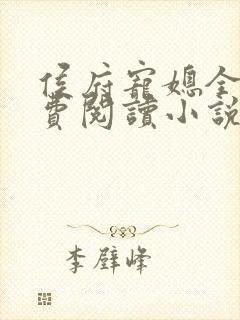 侯府寵媳全
費閱讀小說
李壁峰